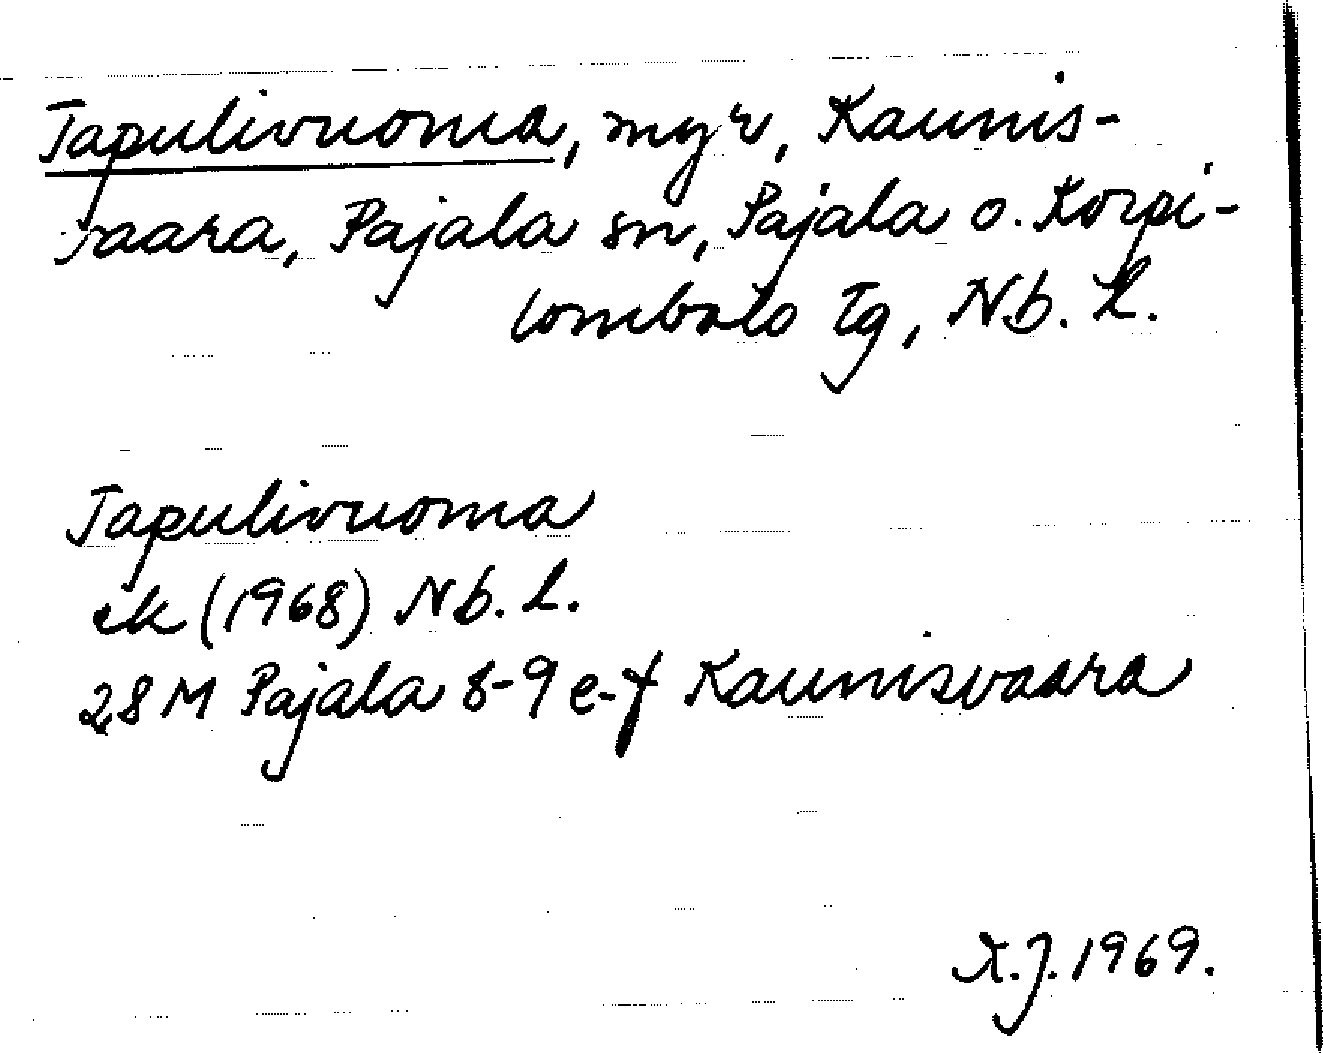 Tapulivuoma, myr, Kaunis-
vaara, Pajala sn, Pajala o. Korpi-
lombolo tg, Nb. l.
Tapulivuoma
ek (1968) Nb. l.
28 M Pajala 8-9 e-f Kaunisvaara
1969.